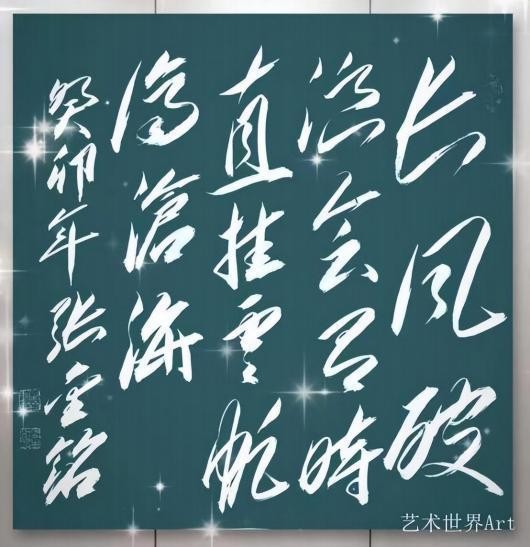 长风破
浪会有时
直挂云帆
济滄海
癸卯年张金铭
艺术世界Art